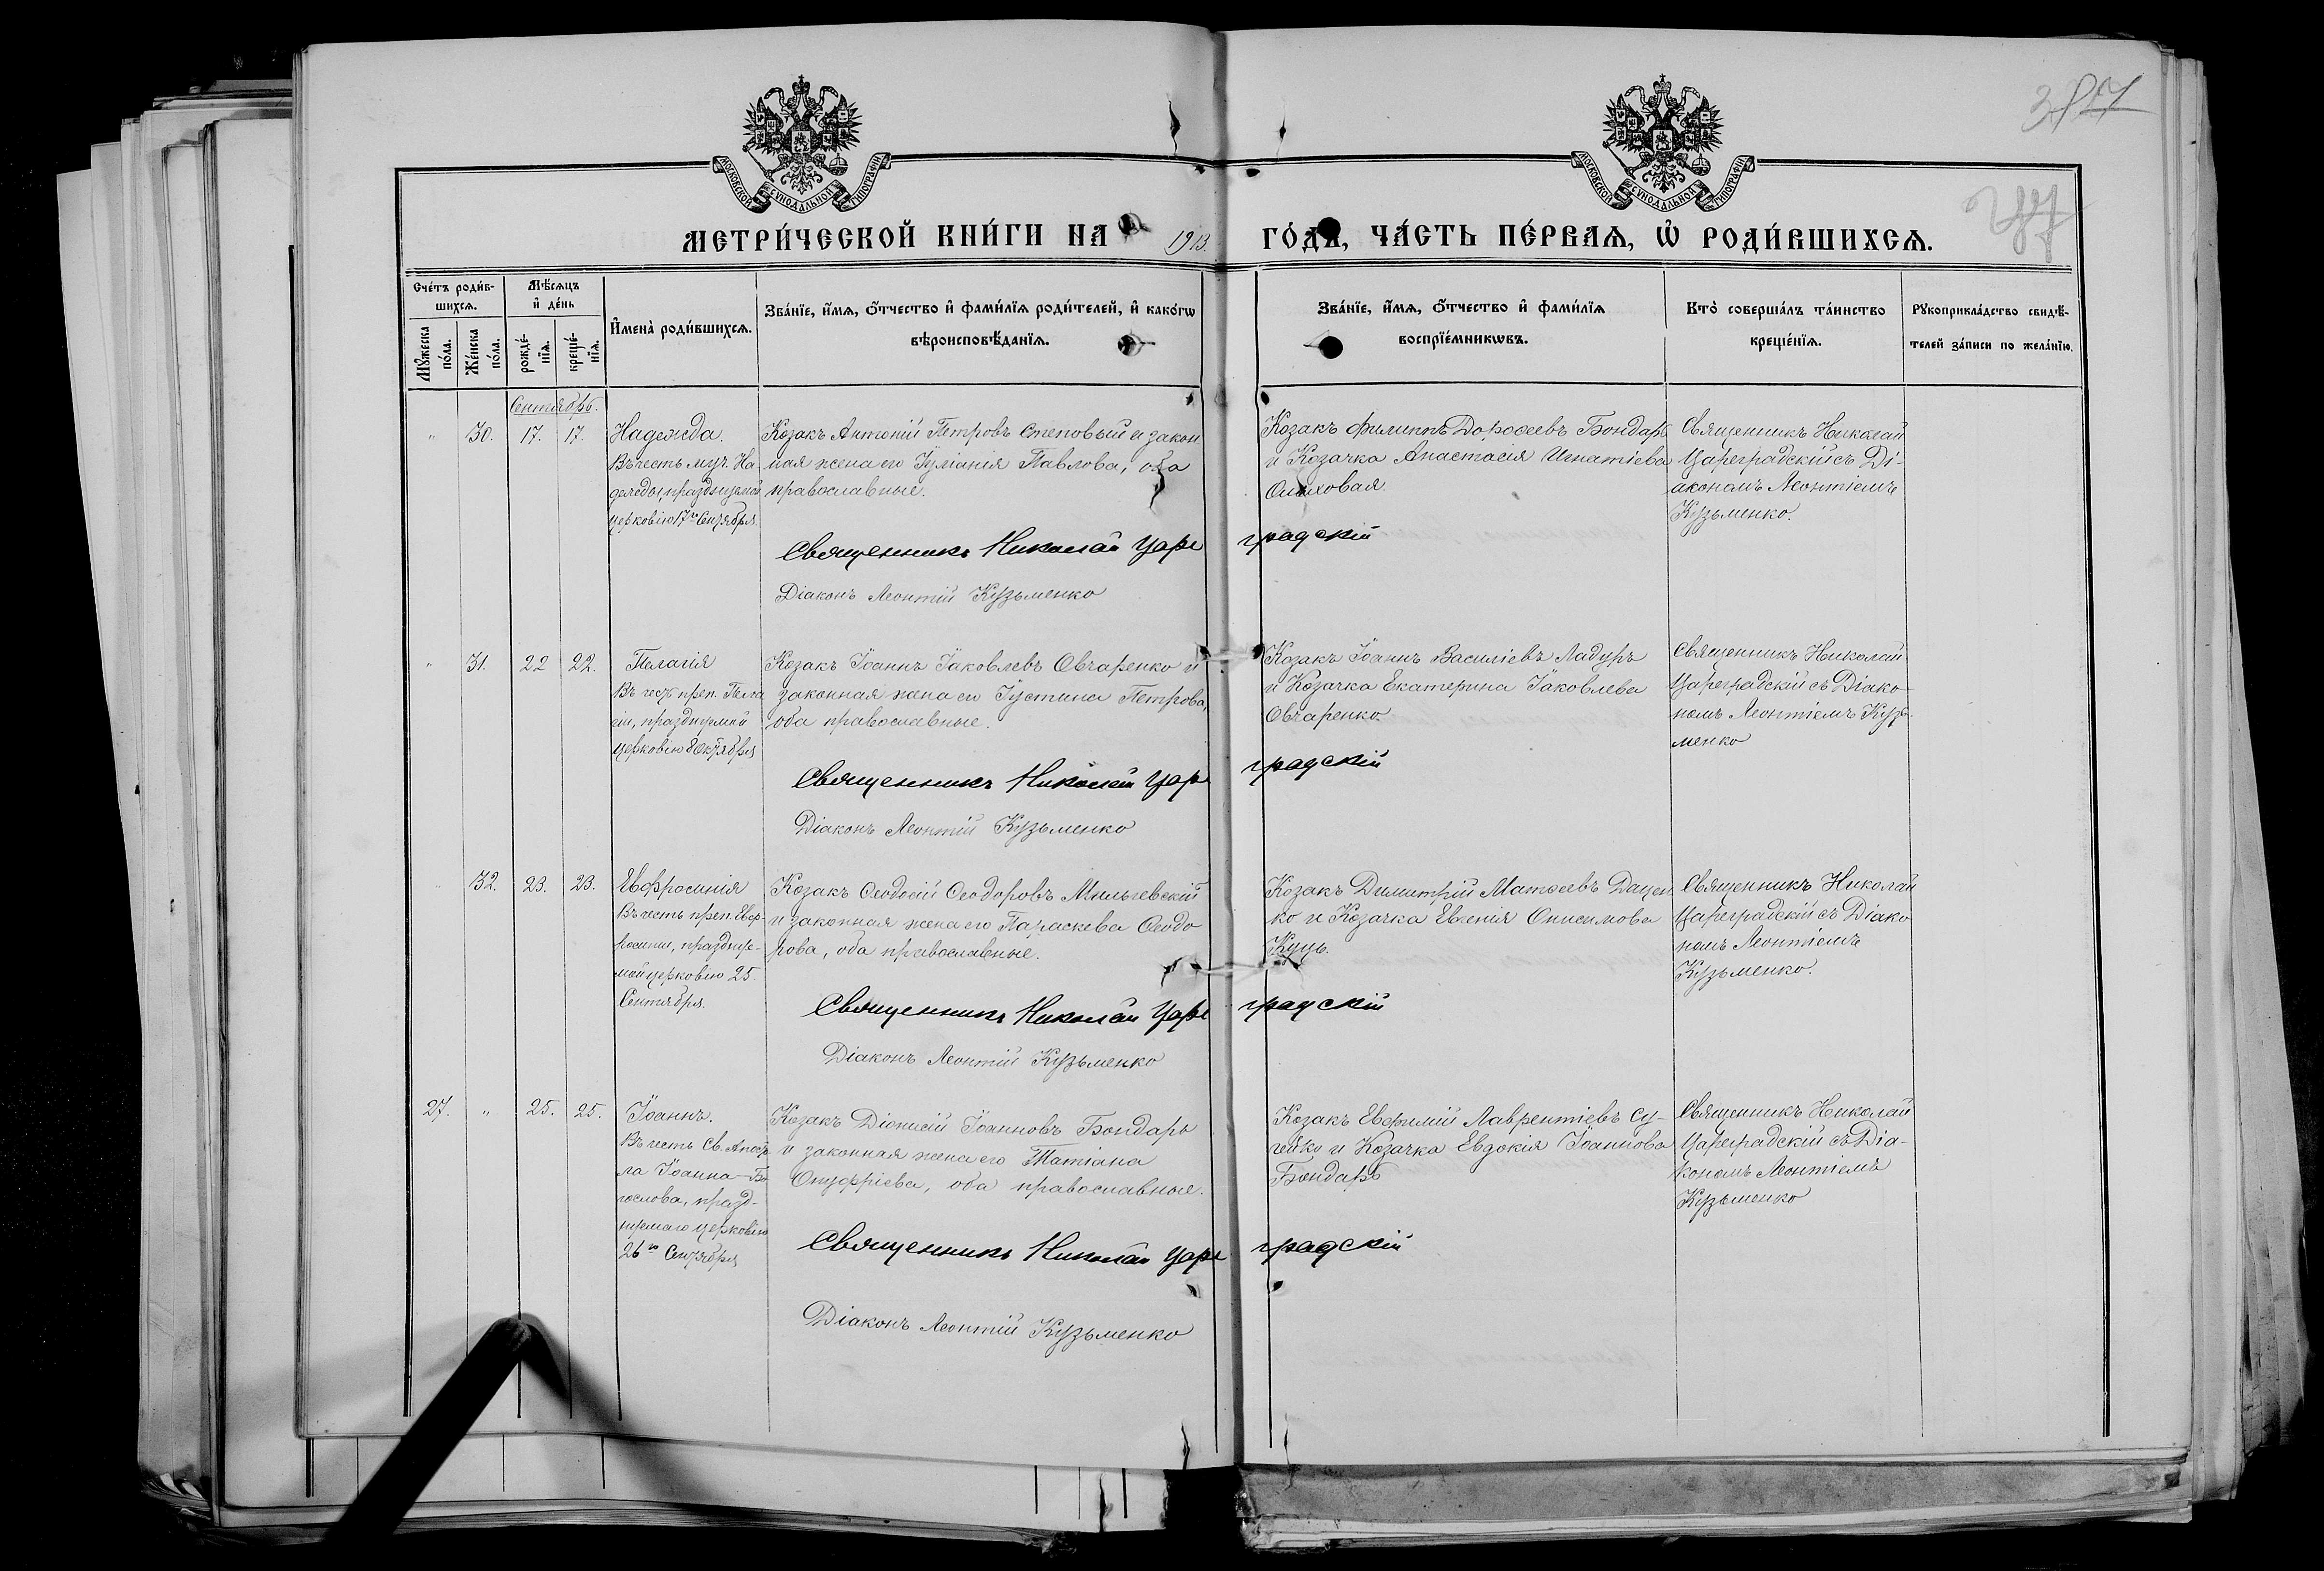 МОСКОВСКОЙ СУНОДАЛЬНОЙ ТИПОГРАФІИ
МОСКОВСКОЙ СУНОДАЛЬНОЙ ТИПОГРАФІИ
МЕТРИ́ЧЕСКОЙ КНИ́ГИ НА 1913. ГО́ДЪ, ЧА́СТЬ ПЕ́РВАѦ, Ѽ РОДИ́ВШИХСѦ.
Сче́тъ роди́в-
шихсѧ.
Мꙋжеска по́ла.
Же́нска по́ла.
Мѣ́сѧцъ
и҆ де́нь
рожде́-
нїѧ.
креще́-
нїѧ.
И҆мена̀ роди́вшихсѧ.
Зва́нїе, и҆́мѧ, ѻ҆́тчество и҆ фами́лїѧ роди́телей, и҆ како́гѡ
вѣроисповѣ́данїѧ.
Зва́нїе, и҆́мѧ, ѻ҆́тчество и҆ фами́лїѧ
воспрїе́мникѡвъ.
Кто̀ соверша́лъ та́инство
креще́нїѧ.
Рꙋкоприкла́дство свидѣ́-
телей за́писи по жела́нїю.
Сентябрь.
" 30. 17. 17.
Надежда.
Въ честь муч. На
дежды, празднуемой
церковію 17го Сентября.
Козакъ Антоній Петровъ Степовый и закон
ная жена его Іуліанія Павлова, оба
православные.
Козакъ Филиппъ Дороѳеевъ Бондарь
и Козачка Анастасія Игнатіева
Священникъ Николай
Цареградскій съ Ді-
акономъ Леонтіемъ
Кузьменко.
Священникъ Николай Царе градскій
Діаконъ Леонтій Кузьменко
" 31. 22 22.
Пелагія
Въ честь преп. Пела
гіи, празднуемой
церковію 8 Октября
Козакъ Іоаннъ Іаковлевъ Овчаренко и
законная жена его Іустина Петрова,
оба православные.
Козакъ Іоаннъ Василіевъ Ладуръ
и Козачка Екатерина Іаковлева
Овчаренко.
Священникъ Николай
Цареградскій съ Діако
номъ Леонтіемъ Кузь-
менко
Священникъ Николай Царе градскій
Діаконъ Леонтій Кузьменко
" 32. 23. 23.
Евфросинія
Въ честь преп. Евф-
росиніи, празднуе-
мой церковію 25
Сентября.
Козакъ Ѳеодосій Ѳеодоровъ Мильчевскій
и законная жена его Параскева Ѳеодо
рова, оба православные.
Козакъ Димитрій Матѳеевъ Дацен
ко и Козачка Евгенія Онисимова
Куць.
Священникъ Николай
Цареградскій съ Діако
номъ Леонтіемъ
Кузьменко.
Священникъ Николай Царе градскій
Діаконъ Леонтій Кузьменко
27. " 25. 25.
Іоаннъ.
Въ честь Св. Апосто
ла Іоанна Бо
гослова, празд-
нуемаго церковію
26го Сентября
Козакъ Діонисій Іоанновъ Бондарь
и законная жена его Татіана
Онуфріева, оба православные.
Козакъ Евфимій Лаврентіевъ Су-
гейко и Козачка Евдокія Іоаннова
Бондарь
Священникъ Николай
Цареградскій съ Діа-
кономъ Леонтіемъ
Кузьменко
Священникъ Николай Царе градскій
Діаконъ Леонтій Кузьменко